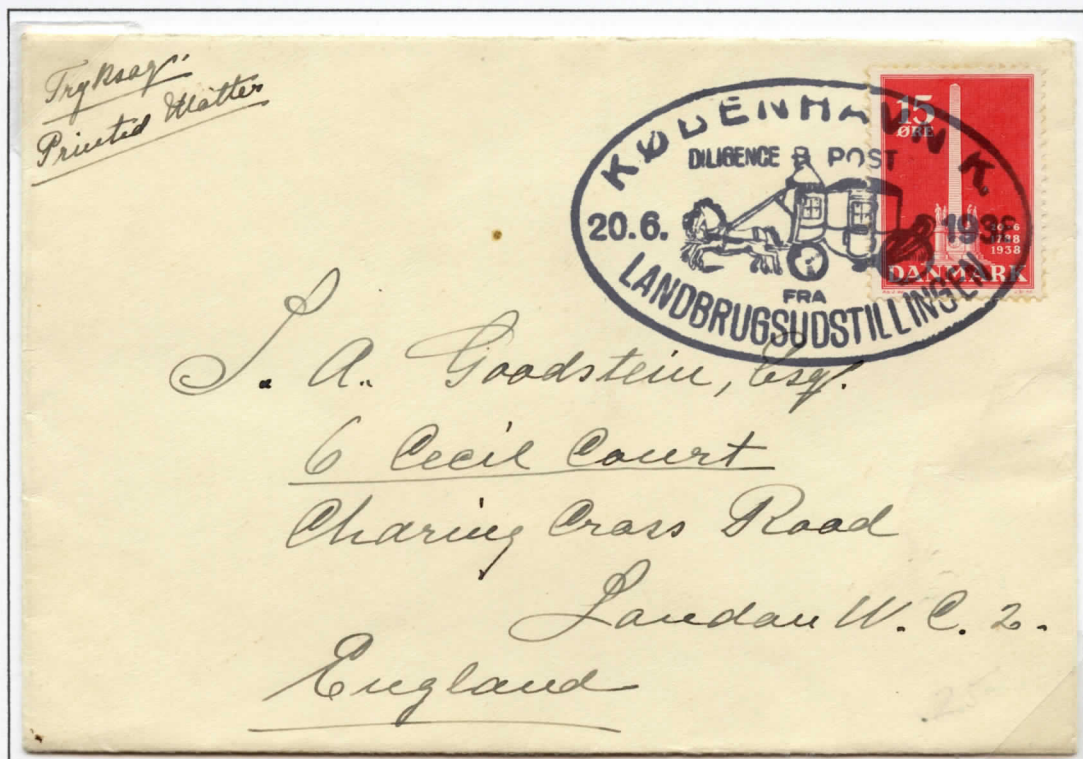 Tryksag
Printed Matter
KØBENHAVN K.
DILIGENCE POST
20.6. 1938
FRA
LANDBRUGSUDSTILLINGEN
15
ØRE
20 6
1788
1938
DANMARK
J. A. Goodstein, Esq.
6 Cecil Court
Charing Cross Road
London W.C. 2.
England